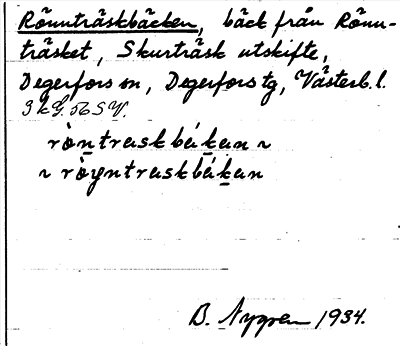 Rönnträskbäcken, bäck från Rönn-
träsket, Skurträsk utskifte,
Degerfors sn, Degerfors tg, Västerb. l.
3 kg. 56 SV.
ròn̲traskbák̲an ~
~ ròyntraskbák̲an
B. Nygren 1934.